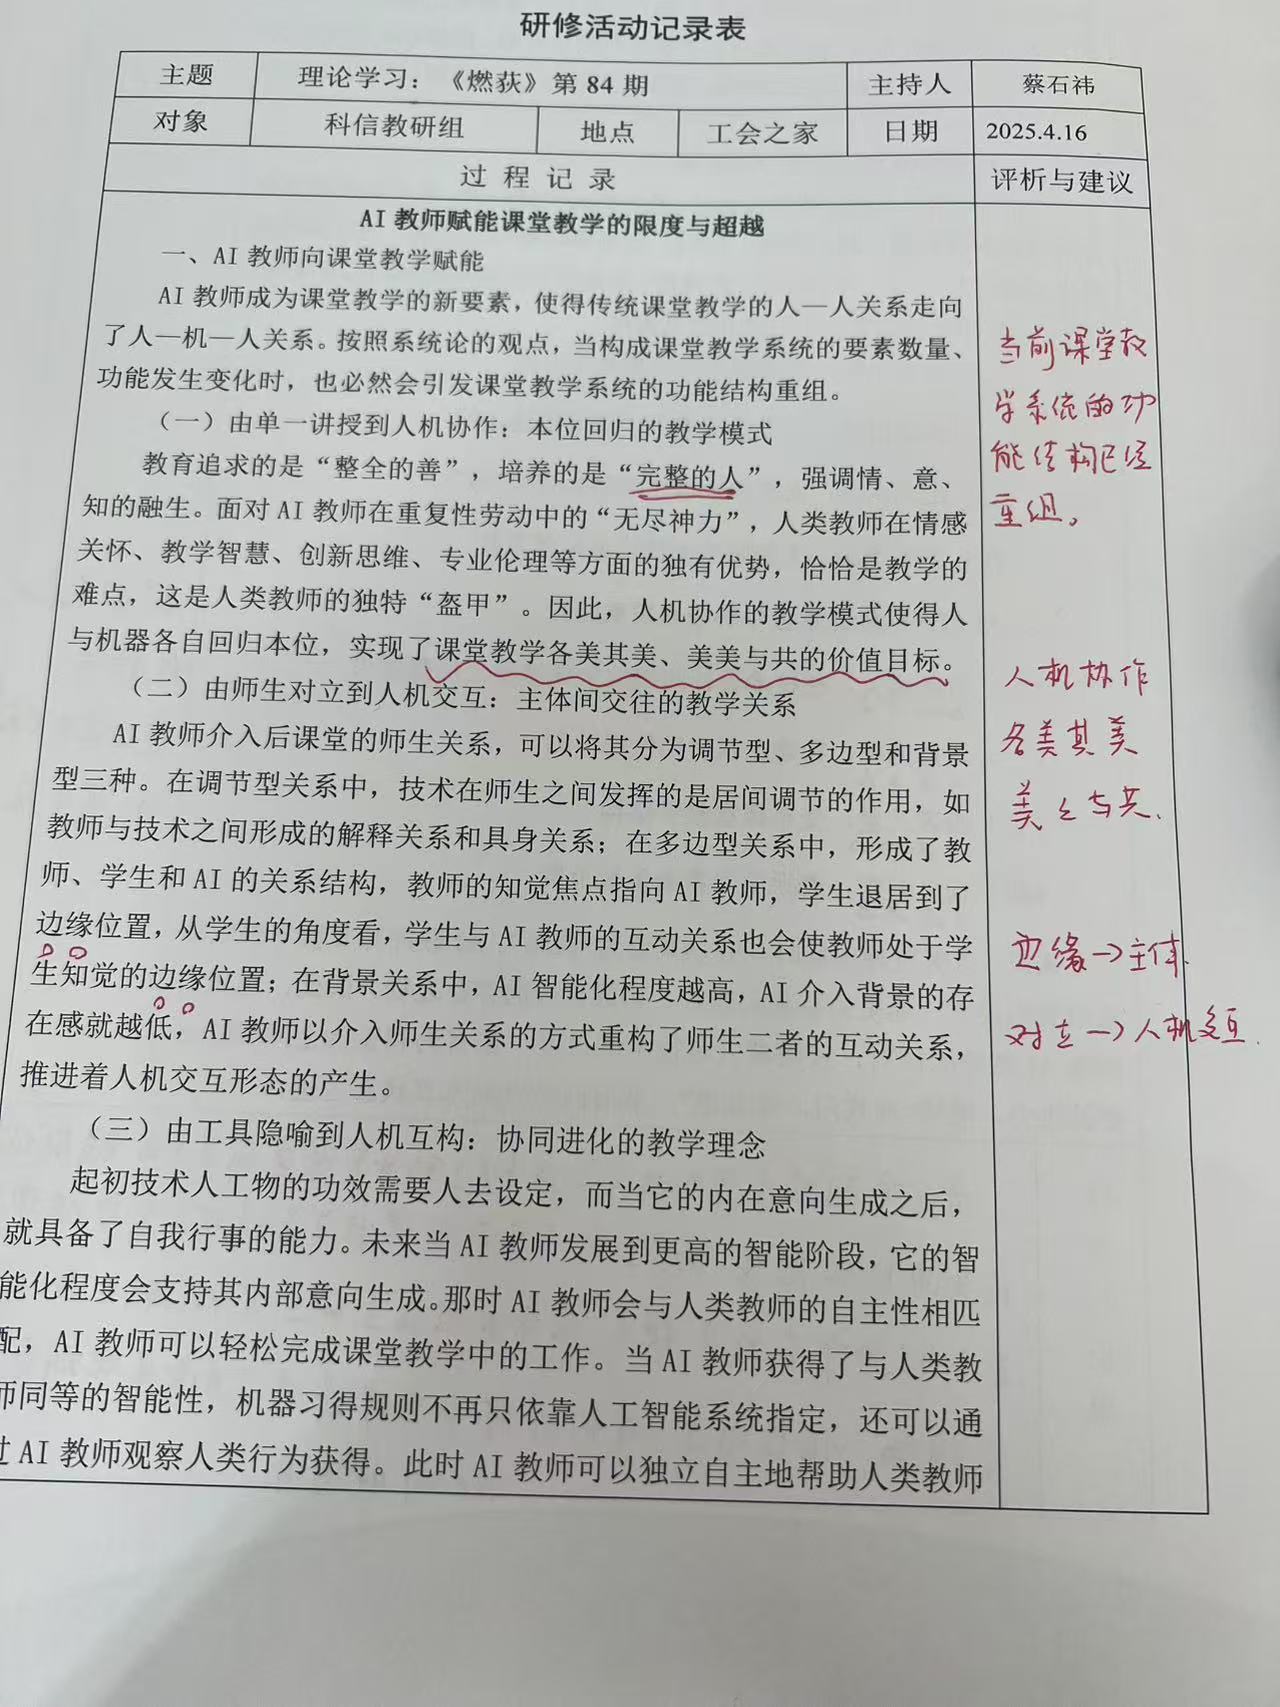 研修活动记录表
主题 理论学习：《燃荻》第 84 期 主持人 蔡石祎
对象 科信教研组 地点 工会之家 日期 2025.4.16
过 程 记 录 评析与建议
AI 教师赋能课堂教学的限度与超越
一、AI 教师向课堂教学赋能
AI 教师成为课堂教学的新要素，使得传统课堂教学的人—人关系走向
了人—机—人关系。按照系统论的观点，当构成课堂教学系统的要素数量、
功能发生变化时，也必然会引发课堂教学系统的功能结构重组。
（一）由单一讲授到人机协作：本位回归的教学模式
教育追求的是“整全的善”，培养的是“完整的人”，强调情、意、
知的融生。面对 AI 教师在重复性劳动中的“无尽神力”，人类教师在情感
关怀、教学智慧、创新思维、专业伦理等方面的独有优势，恰恰是教学的
难点，这是人类教师的独特“盔甲”。因此，人机协作的教学模式使得人
与机器各自回归本位，实现了课堂教学各美其美、美美与共的价值目标。
（二）由师生对立到人机交互：主体间交往的教学关系
AI 教师介入后课堂的师生关系，可以将其分为调节型、多边型和背景
型三种。在调节型关系中，技术在师生之间发挥的是居间调节的作用，如
教师与技术之间形成的解释关系和具身关系；在多边型关系中，形成了教
师、学生和 AI 的关系结构，教师的知觉焦点指向 AI 教师，学生退居到了
边缘位置，从学生的角度看，学生与 AI 教师的互动关系也会使教师处于学
生知觉的边缘位置；在背景关系中，AI 智能化程度越高，AI 介入背景的存
在感就越低，AI 教师以介入师生关系的方式重构了师生二者的互动关系，
推进着人机交互形态的产生。
（三）由工具隐喻到人机互构：协同进化的教学理念
起初技术人工物的功效需要人去设定，而当它的内在意向生成之后，
就具备了自我行事的能力。未来当 AI 教师发展到更高的智能阶段，它的智
能化程度会支持其内部意向生成。那时 AI 教师会与人类教师的自主性相匹
配，AI 教师可以轻松完成课堂教学中的工作。当 AI 教师获得了与人类教
师同等的智能性，机器习得规则不再只依靠人工智能系统指定，还可以通
过 AI 教师观察人类行为获得。此时 AI 教师可以独立自主地帮助人类教师
当前课堂教
学系统的功
能结构已经
重组。
人机协作
各美其美
美美与共.
边缘→主体.
对立→人机交互.